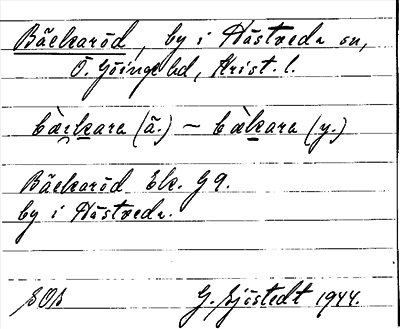 Bäckaröd, by i Hästveda sn,
Ö. Göinge hd, Krist. l.
bæ̀rkara (ä.) – bæ̀kara (y.)
Bäckaröd Ek. G 9.
by i Hästveda.
SOS
G. Sjöstedt 1944.